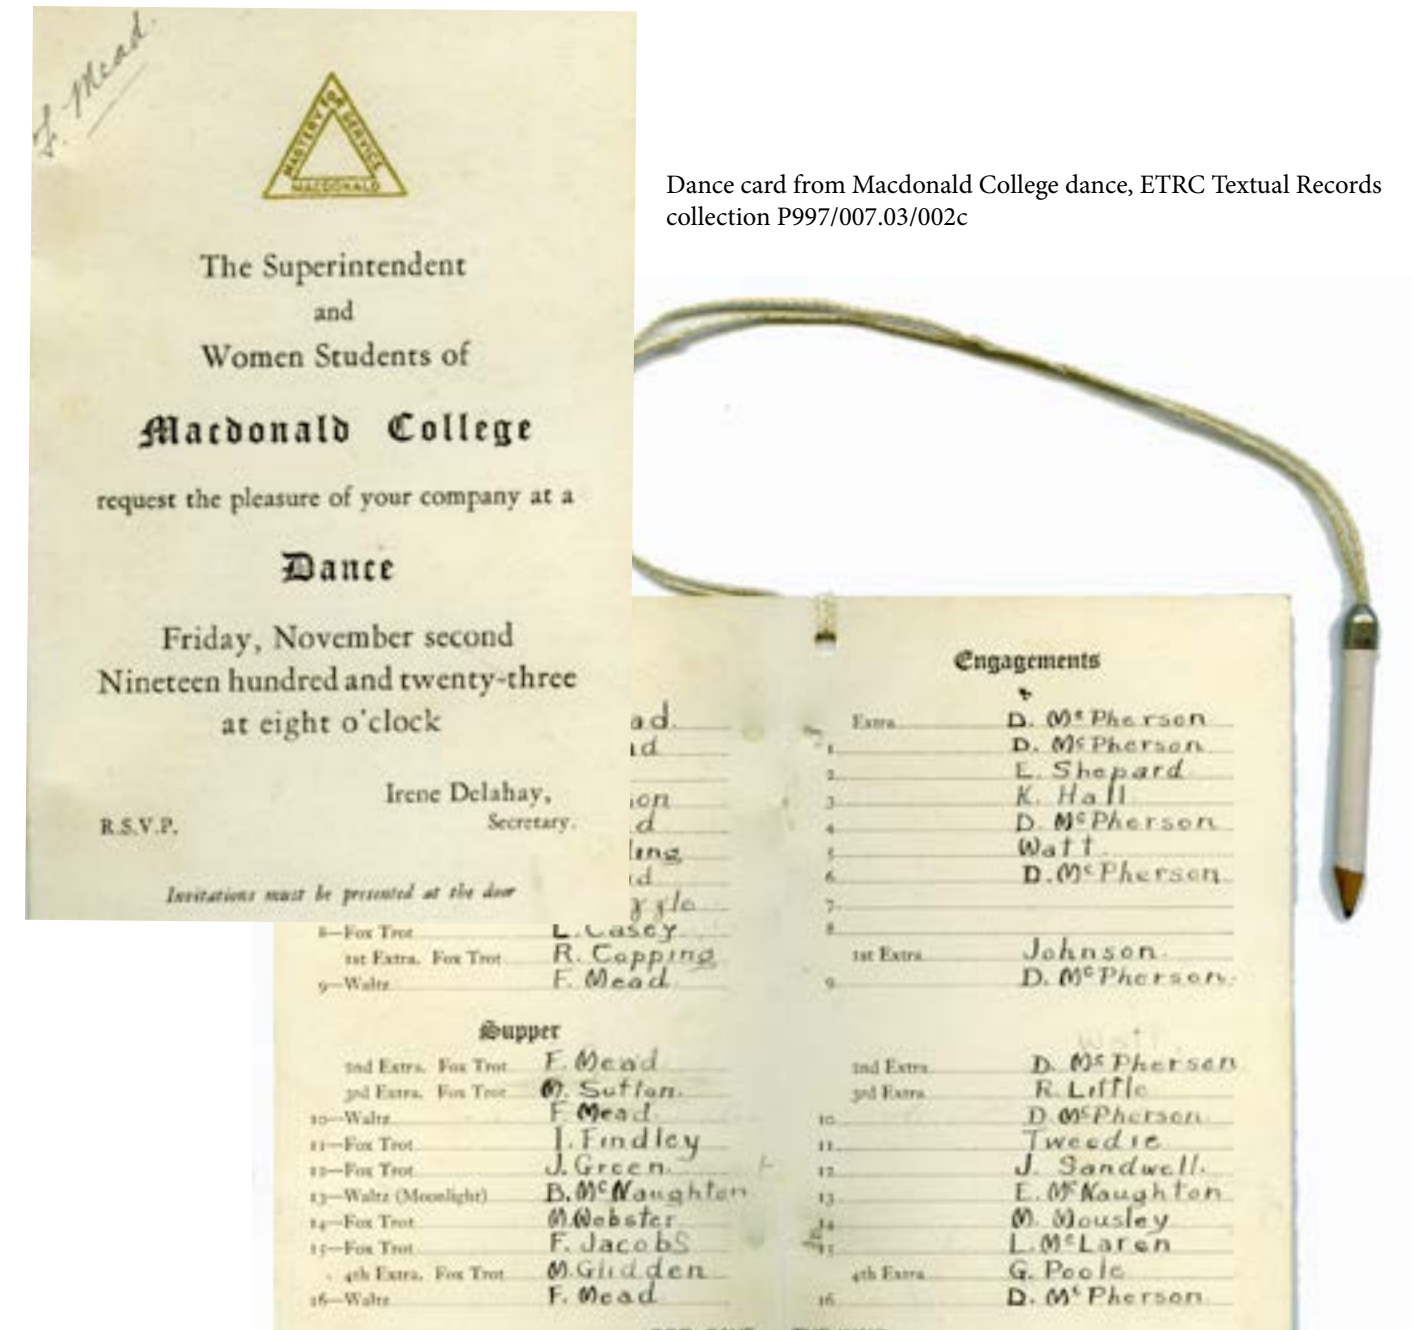 F. Mead.
MASTERY FOR SERVICE
MACDONALD
The Superintendent
and
Women Students of
Macdonald College
request the pleasure of your company at a
Dance
Friday, November second
Nineteen hundred and twenty-three
at eight o'clock
Irene Delahay,
R.S.V.P. Secretary.
Invitations must be presented at the door
Dance card from Macdonald College dance, ETRC Textual Records
collection P997/007.03/002c
ad.
ad
on
d
ling
d
8—Fox Trot L. Casey
1st Extra. Fox Trot R. Copping
9—Waltz F. Mead
Supper
2nd Extra. Fox Trot F. Mead
3rd Extra. Fox Trot M. Sutton.
10—Waltz F. Mead
11—Fox Trot I. Findley
12—Fox Trot J. Green.
13—Waltz (Moonlight) B. McNaughton
14—Fox Trot M. Webster
15—Fox Trot F. Jacobs
4th Extra. Fox Trot M. Glidden
16—Waltz F. Mead
Engagements
Extra D. McPherson
1 D. McPherson
2 E. Shepard
3 K. Hall
4 D. McPherson
5 Watt
6 D. McPherson
7
8
1st Extra Johnson.
9 D. McPherson.
2nd Extra D. McPherson
3rd Extra R. Little
10 D McPherson
11 Tweedie
12 J. Sandwell.
13 E. McNaughton
14 M. Mousley
15 L. McLaren
4th Extra G. Poole
16 D. McPherson